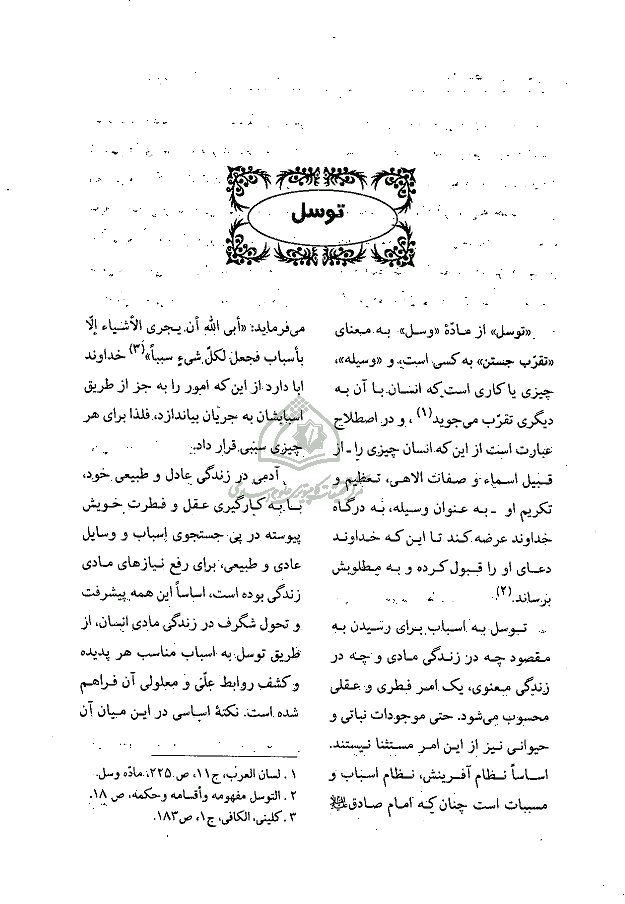 توسل
«توسل» از مادّهٔ «وسل» به معنای
«تقرّب جستن» به کسی است، و «وسیله»،
چیزی یا کاری است که انسان با آن به
دیگری تقرّب می‌جوید(۱)، و در اصطلاح
عبارت است از این که انسان چیزی را ـ از
قبیل اسماء و صفات الاهی، تعظیم و
تکریم او ـ به عنوان وسیله، به درگاه
خداوند عرضه کند تا این که خداوند
دعای او را قبول کرده و به مطلوبش
برساند.(۲)
توسل به اسباب برای رسیدن به
مقصود چه در زندگی مادی و چه در
زندگی معنوی، یک امر فطری و عقلی
محسوب می‌شود. حتی موجودات نباتی و
حیوانی نیز از این امر مستثنا نیستند.
اساساً نظام آفرینش، نظام اسباب و
مسببات است چنان که امام صادق
می‌فرماید: «أبی اللهُ أن یجری الأشیاء إلّا
بأسباب فجعل لکلّ شیءٍ سبباً»(۳) خداوند
ابا دارد از این که امور را به جز از طریق
اسبابشان به جریان بیاندازد، فلذا برای هر
چیزی سببی قرار داد.
آدمی در زندگی عادل و طبیعی خود،
با به کارگیری عقل و فطرت خویش
پیوسته در پی جستجوی اسباب و وسایل
عادی و طبیعی، برای رفع نیازهای مادی
زندگی بوده است، اساساً این همه پیشرفت
و تحول شگرف در زندگی مادی انسان، از
طریق توسل به اسباب مناسب هر پدیده
و کشف روابط علّی و معلولی آن فراهم
شده است. نکتهٔ اساسی در این میان آن
۱ . لسان العرب، ج۱۱، ص ۲۲۵، مادّه وسل.
۲ . التوسل مفهومه وأقسامه وحکمه، ص ۱۸.
۳ . کلینی، الکافی، ج۱، ص۱۸۳.